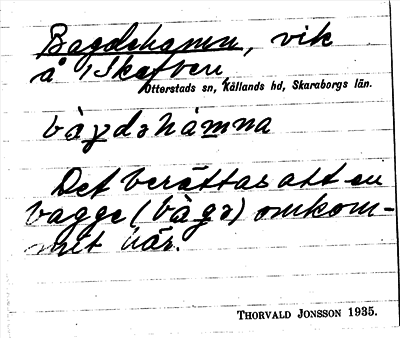 Bagdehamn, vik
å Skafven,
Otterstads sn, Kållands hd, Skaraborgs län.
bàgdəhàmna
Det berättas att en
bagge (bàgə) omkom-
mit här.
THORVALD JONSSON 1935.